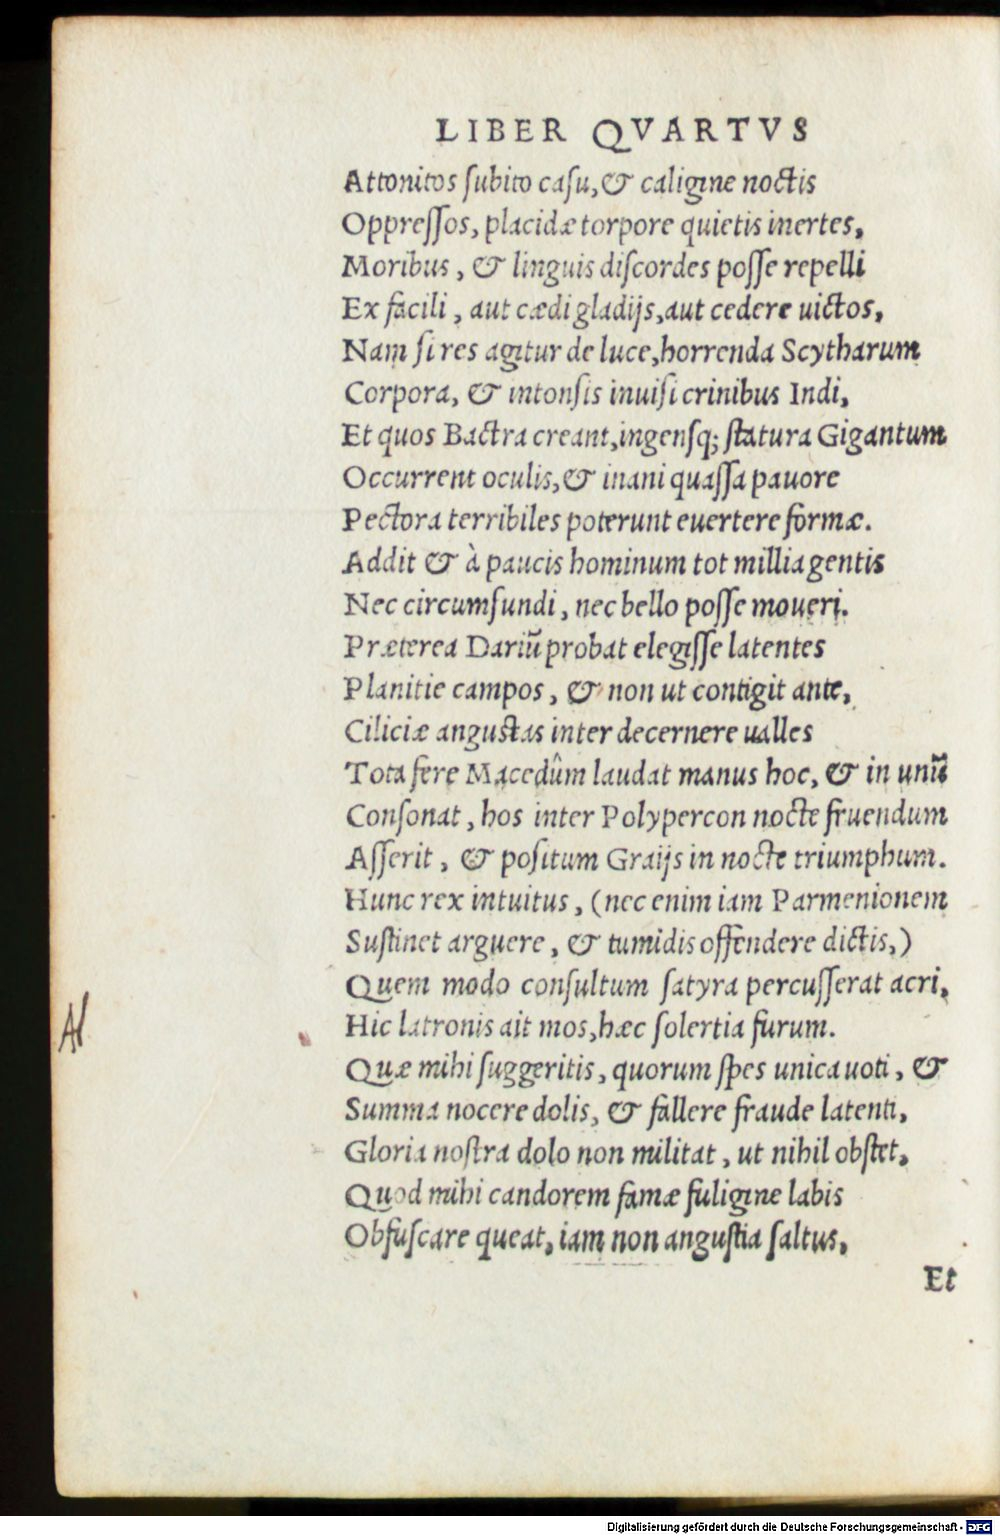 LIBER QVARTVS
Attonitos ſubito caſu, & caligine noctis
Oppreſſos, placidæ torpore quietis inertes,
Moribus, & linguis diſcordes poſſe repelli
Ex facili, aut cædi gladijs, aut cedere uictos,
Nam ſi res agitur de luce, horrenda Scytharum
Corpora, & intonſis inuiſi crinibus Indi,
Et quos Bactra creant, ingenſq; ſtatura Gigantum
Occurrent oculis, & inani quaſſa pauore
Pectora terribiles poterunt euertere formæ.
Addit & à paucis hominum tot millia gentis
Nec circumfundi, nec bello poſſe moueri.
Præterea Dariũ probat elegiſſe latentes
Planitie campos, & non ut contigit ante,
Ciliciæ anguſtas inter decernere ualles
Tota fere Macedûm laudat manus hoc, & in unũ
Conſonat, hos inter Polypercon nocte fruendum
Aſſerit, & poſitum Graijs in nocte triumphum.
Hunc rex intuitus, (nec enim iam Parmenionem
Suſtinet arguere, & tumidis offendere dictis,)
Quem modo conſultum ſatyra percuſſerat acri,
Al
Hic latronis ait mos, hæc ſolertia furum.
Quæ mihi ſuggeritis, quorum ſpes unica uoti, &
Summa nocere dolis, & fallere fraude latenti,
Gloria noſtra dolo non militat, ut nihil obſtet,
Quod mihi candorem famæ fuligine labis
Obfuſcare queat, iam non anguſtia ſaltus,
Et
Digitalisierung gefördert durch die Deutsche Forschungsgemeinschaft - DFG